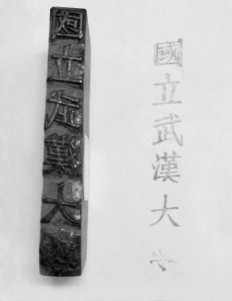 國立武漢大
國立武漢大